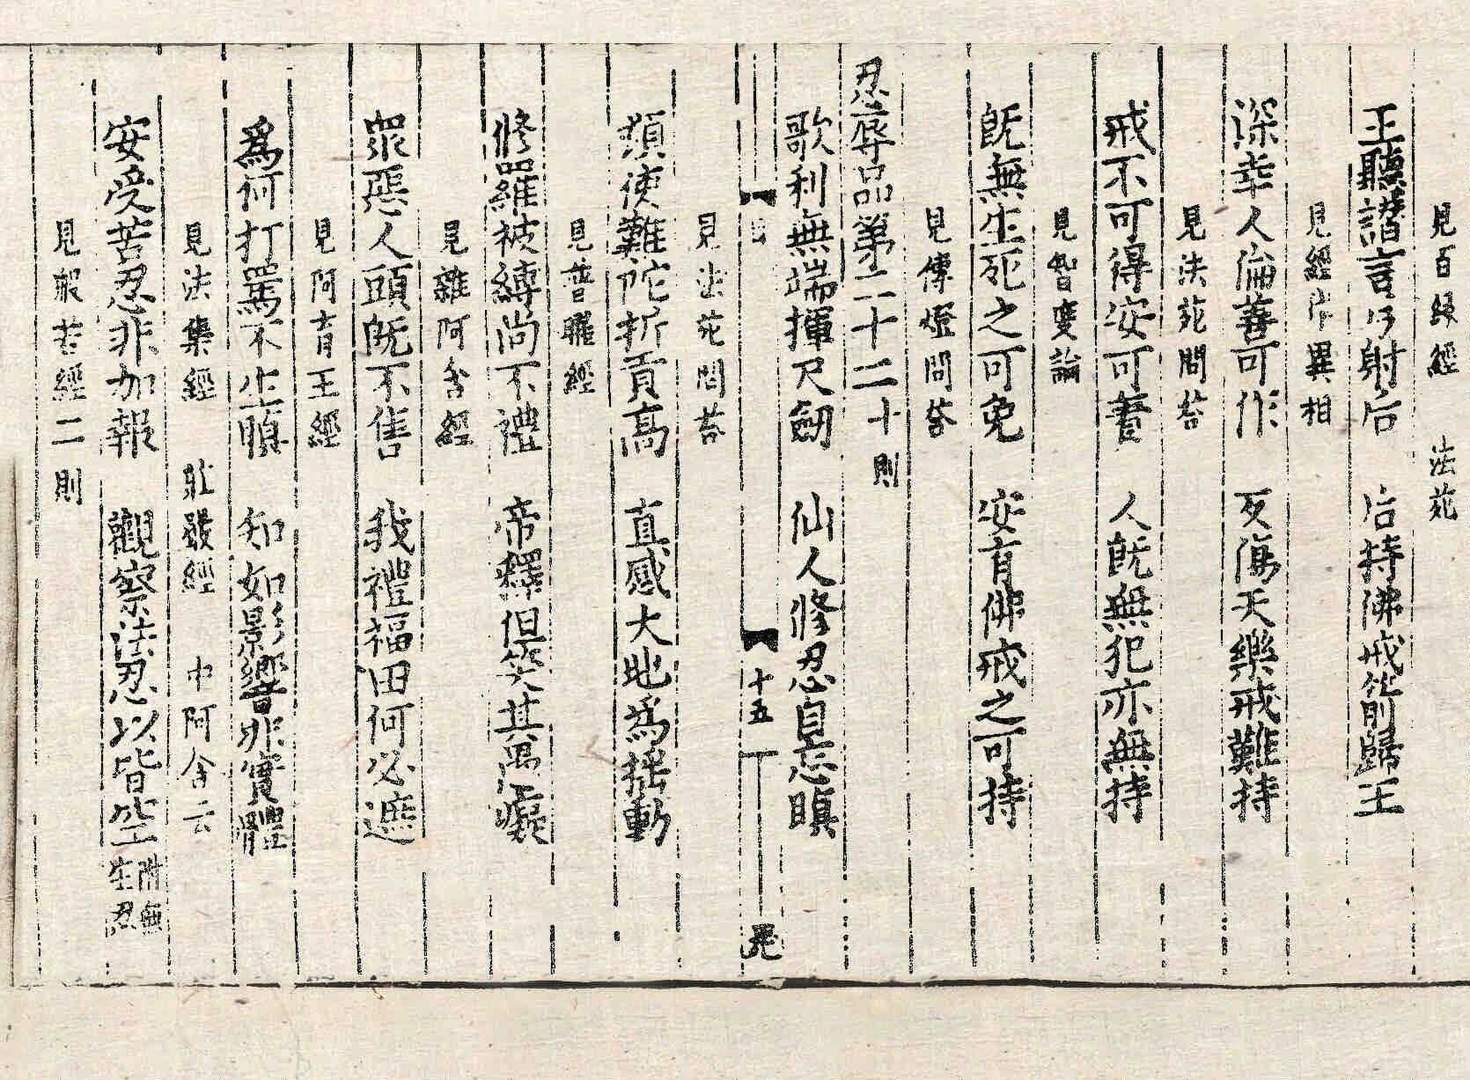 見百緣經　法苑
王聽讒言乃射后　后持佛戒箭歸王
見經律異相
深幸人倫善可作　反傷天樂戒難持
見法苑問荅
戒不可得安可着　人旣無犯亦無持
見智度論
旣無生死之可免　安有佛戒之可持
見傳燈問荅
忍辱品第二十二 十則
歌利無端揮尺劒　仙人修忍自忘瞋
十五
見法苑問荅
須使難陀折貢高　直感大地爲揺動
見普曜經
修羅被縛尚不禮　帝釋但笑其愚癡
見雜阿含經
衆惡人頭旣不售　我禮福田何必遮
見阿育王經
爲何打罵不生瞋　知如影響非實體
見法集經　莊嚴經　中阿含云
安受苦忍非加報　觀察法忍以皆空 附無生忍
見般若經二則